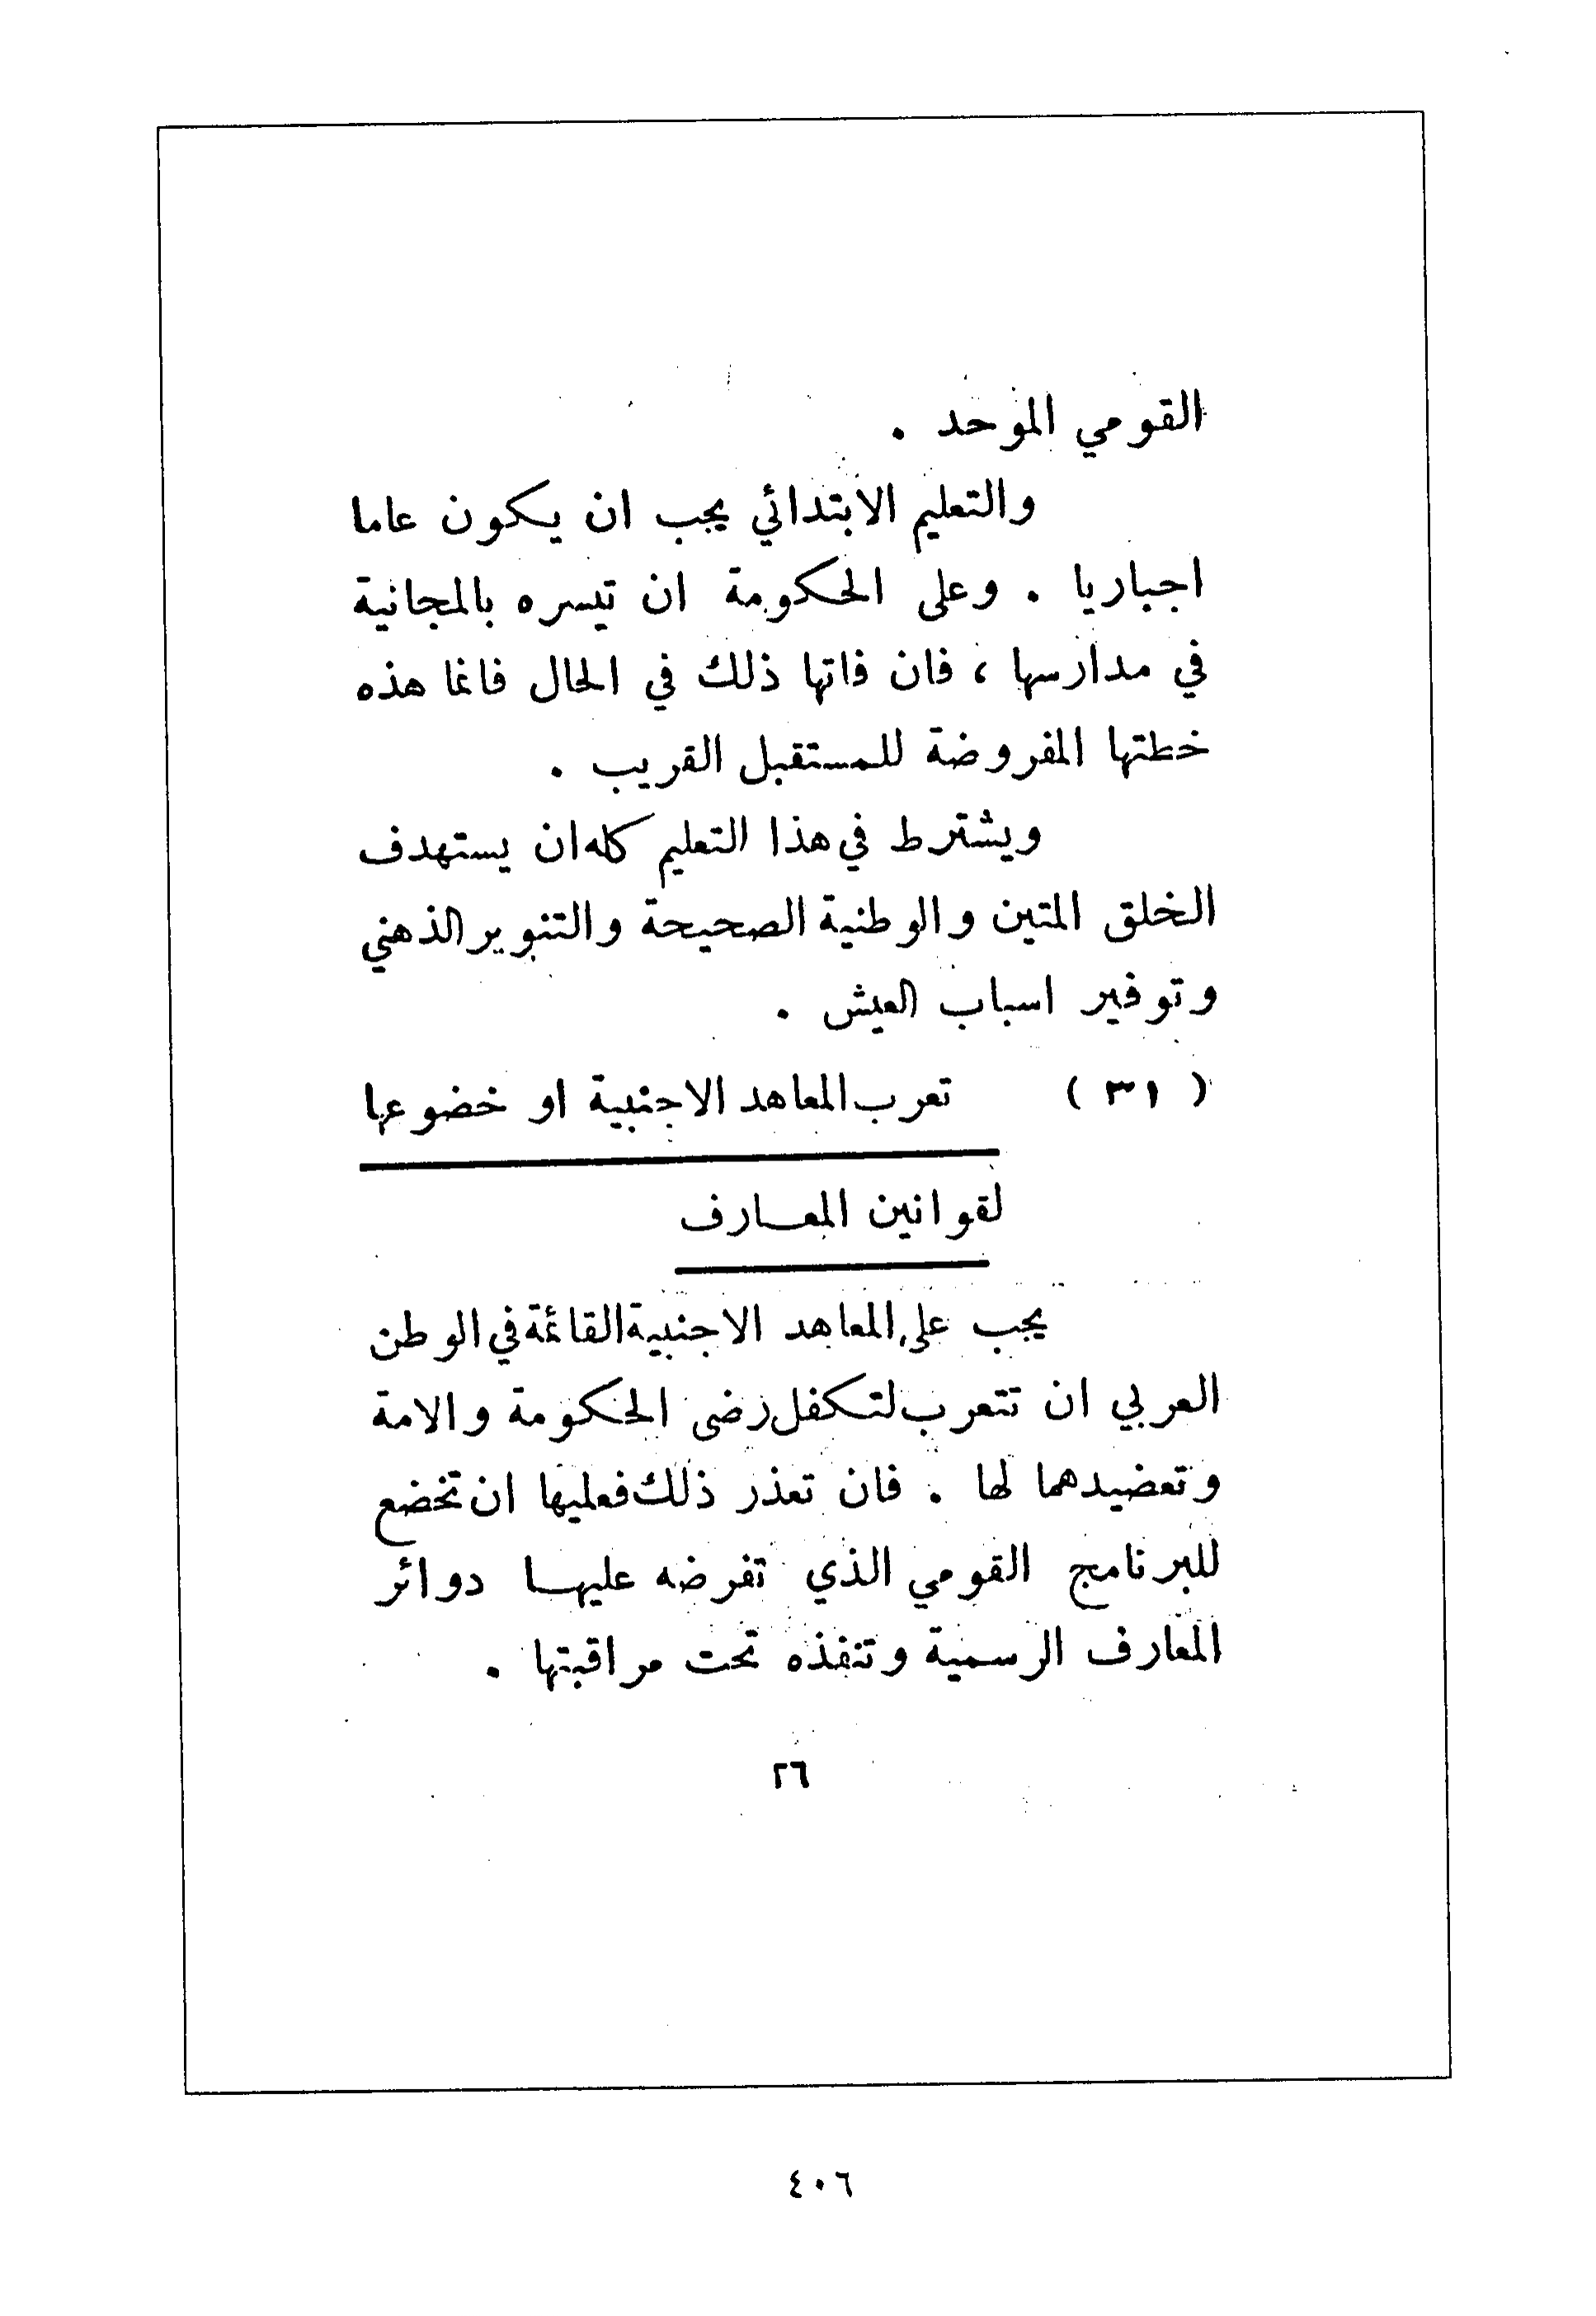 القومي الموحد .
والتعليم الابتدائي يجب ان يكون عاما
اجباريا . وعلى الحكومة ان تيسره بالمجانية
في مدارسها ، فان فاتها ذلك في الحال فانما هذه
خطتها المفروضة للمستقبل القريب .
ويشترط في هذا التعليم كله ان يستهدف
الخلق المتين والوطنية الصحيحة والتنوير الذهني
وتوفير اسباب العيش .
( ٣١ ) تعرب المعاهد الاجنبية او خضوعها
لقوانين المعـارف
يجب على المعاهد الاجنبية القائمة في الوطن
العربي ان تتعرب لتكفل رضى الحكومة والامة
وتعضيدهما لها . فان تعذر ذلك فعليها ان تخضع
للبرنامج القومي الذي تفرضه عليهـا دوائر
المعارف الرسمية وتنفذه تحت مراقبتها .
٢٦
٤٠٦